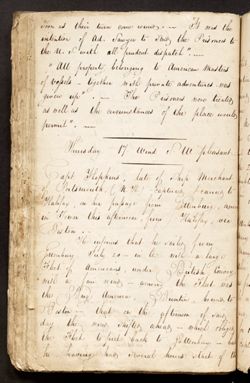 soon as their turn now comes. — It was the
intention of Ad. Sawyer to send the Prisoners to
the U. S. with all prudent dispatch". —
"All property belonging to American Masters
of vessels together with private adventures was
given up". — The Prisoners were treated
as well as the circumstances of the place would
permit". —
Thursday 17 Wind S.W. pleasant.
Capt Hopkins, late of Ship Merchant
Portsmouth (N.H.) captured, carried to
Halifax, on his passage from Gottenburg, arrived
in Town this afternoon from Halifax, via
Boston. —
He informs that he sailed from
Gottenburg July in with a large
Fleet of Americans, under British Convoy
with a fair wind, — among the Fleet was
the Ship America, bound to
Boston — that in the afternoon of said
day the wind shifted ahead — which obliged
the Fleet to put back to Gottenburg — but
he having had several hours start of the